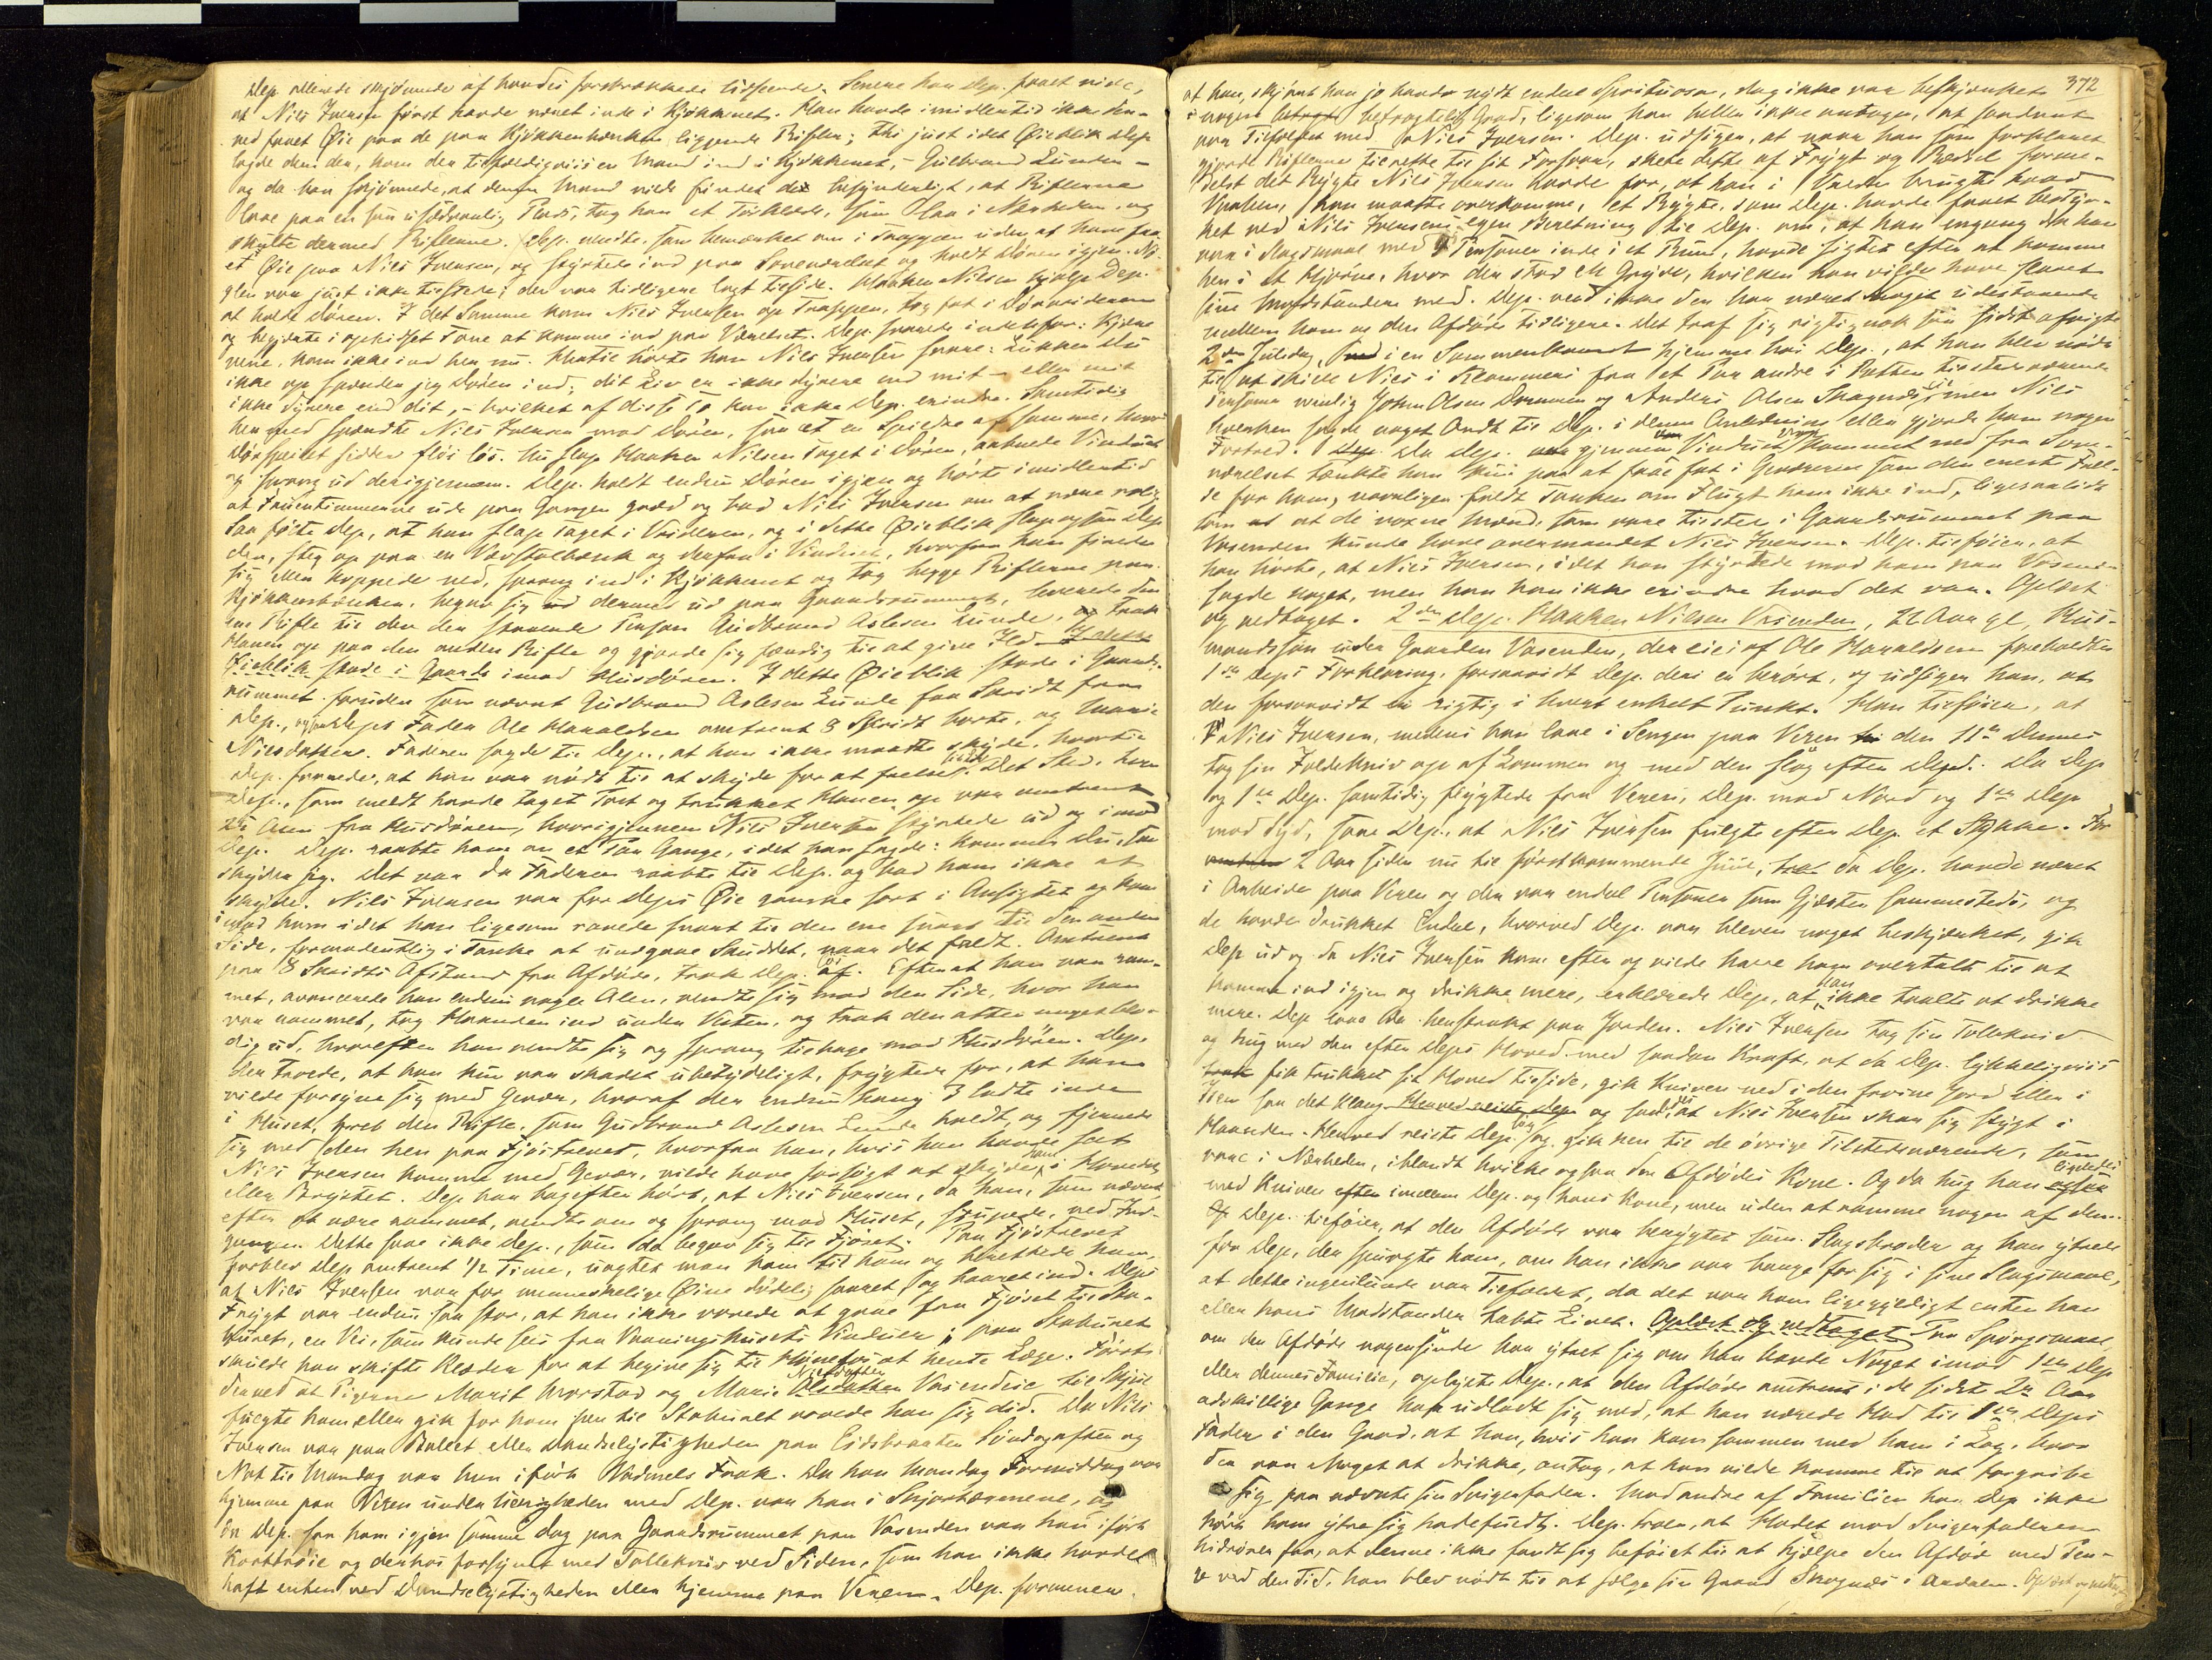 Dep. allerede skjønnede af hendes forskrækkede Udseende. Senere har Dep. faaet vide,
at Nils Iversen først havde været inde i Kjøkkenet. Han havde imidlertid ikke der-
ved faaet Øie paa de paa Kjøkkenbænken liggende Rifler; thi just i det Øieblik Dep.
lagde dem der, kom den tilfældigviis en Mand ind i Kjøkkenet, – Gulbrand Lunden –
og da han skjønnede, at denne Mand vilde findet det besynderligt, at Riflerne
laae paa en saa usædvanlig Plads, tog han et Tørklæde, som laa i Nærheden og
skjulte dermed Riflerne. Dep. rendte som bemærket om i Trappen uden at have faa
et Øie paa Nils Iversen, og styrtede ind paa Soveværelset og holdt Døren igjen. Nø-
glen var just ikke tilstede; den var tidligere lagt tilside. Haaken Nilsen hjalp Dep.
at holde Døren. I det Samme kom Nils Iversen op Trappen, tog fat i Dørvrideren
og begjærte i ophidset Tone at komme ind paa Værelset. Dep. svarede indenfor: Kjære
vene, kom ikke ind her nu. Hertil hørte han Nils Iversen svare: Lukker Du
ikke op spænder jeg Døren ind; dit Liv er ikke dyrere end mit – eller mit
ikke dyrere end dit, – hvilket af disse to kan ikke Dep. erindre. Samtidig
hermed spændte Nils Iversen mod Døren, saa at en Speilde af samme, hvori
Dørspeilet sidder fløi løs. Nu slap Haaken Nilsen Taget i Døren, aabnede Vinduet
og sprang ud derigjennem. Dep. holdt endnu Døren igjen og hørte imidlertid
at Fruentimmerne ude paa Gangen græd og bad Nils Iversen om at være rolig.
Saa følte Dep., at han slap Taget i Vrideren, og i dette Øieblik slap ogsaa Dep.
den, steg op paa en Vævstolbænk og derfra i Vinduet, hvorfra han firede
sig eller hoppede ned, sprang ind i Kjøkkenet og tog begge Riflerne paa
Kjøkkenbænken, begav sig dermed ud paa Gaardsrummet, leverede den
ene Rifle til den der staaende Person Gudbrand Aslesen Lunde, trak
Hanen op paa den anden Rifle og gjorde sig færdig til at give Ild I dette
Øieblik stode i Gaards imod Husdøren. I dette Øieblik stode i Gaards-
rummet foruden som nævnt Gudbrand Aslesen Lunde faa Skridt fra
Dep., ogsaa Deps Fader Ole Haraldsen omtrent 8 Skridt borte, og Marie
Nilsdatter. Faderen sagde til Dep., at han ikke maatte skyde, hvortil
Dep. svarede, at han var nødt til at skyde for at frelse Livet. Det Sted, hvor
Dep., som meldt havde taget Post og trukket Hanen op var omtrent
Alen fra Husdøren, hvorigjennem Nils Iversen styrtede ud og imod
Dep. Dep. raabte ham an et Par Gange, idet han sagde: kommer Du, saa
skyder jeg. Det var da Faderen raabte til Dep. og bad ham ikke at
skyde. Nils Iversen var for Deps Øie ganske sort i Ansigtet og kom
imod ham idet han ligesom ravede snart til den ene snart til den anden
Side, formodentlig i Tanke at undgaae Skuddet, naar det faldt. Omtrent
paa 8 Skridts Afstand fra Afdøde, trak Dep. af. Efterat han var ram-
met, avancerede han endnu nogle Alen, vendte sig mod den Side, hvor han
var rammet, tog Haanden ind under Vesten, og trak den atter noget blo-
dig ud, hvorefter han vendte sig og sprang tilbage mod Husdøren. Dep.
der troede, at han kun var skadet ubetydeligt, frygtede for, at han
vilde forsyne sig med Gevær, hvoraf der endnu hang 3 ladte inde
i Huset, greb den Rifle, som Gudbrand Aslesen Lunde holdt, og fjernede
sig med den hen paa Fjøstrevet, hvorfra han, hvis han havde seet
Nils Iversen komme med Gevær, vilde have forsøgt at skyde ham i Hovedet
eller Brystet. Dep. har bagefter hørt, at Nils Iversen, da han, som nævnt
efter at være rammet, vendte om og sprang mod Huset, stupede, ved Ind-
gangen. Dette saae ikke Dep., som da begav sig til Fjøset. Paa Fjøstrevet
forblev Dep. omtrent 1/2 Time, uagtet man kom til ham og berettede ham,
at Nils Iversen var for menneskelige Øine dødelig saaret, og baaret ind. Deps
Frygt var endnu saa stor, at han ikke vovede at gaae fra Fjøset til Sta-
buret, en Vei, som kunde sees fra Vaaningshusets Vinduer; paa Staburet
skulde han skifte Klæder for at begive sig til Hønefos at hente Læge. Først
derved at Pigerne Marit Morstad og Marie Nilsdatter Vasenden til Skjul
fulgte ham eller gik for ham hen til Staburet vovede han sig did. Da Nils
Iversen var paa Ballet eller Dandselystigheden paa Eidsbraaten Søndagaften og
Nat til Mandag var han iført Vadmels Frak. Da han Mandag Formiddag var
hjemme paa Viken under Uenigheden med Dep. var han i Skjorteærmene, og
da Dep. saa ham igjen samme Dag paa Gaardsrummet paa Vasenden var han iført
Korttrøie og derhos forsynet med Tollekniv ved Siden, som han ikke havde
haft enten ved Dandselystigheden eller hjemme paa Veien. Dep. formener
372
at han, skjønt han jo havde nydt endeel Spirituosa, dog ikke var beskjænket
i nogen betragtelig Grad, ligesom han heller ikke antager, at saadant
var Tilfældet med Nils Iversen. Dep. udsiger, at naar han som forklaret
gjorde Riflerne tilrette til sit Forsvar, skete dette af Frygt og Rædsel forme-
delst det Rygte Nils Iversen havde for, at han i Vrede brugte hvad
Vaaben, han maatte overkomme, et Rygte, som Dep. havde faaet bestyr-
ket ved Nils Iversens egen Beretning til Dep. om, at han engang da han
var i Slagsmaal med 9 Personer inde i et Rum, havde sigtet efter at komme
hen i et Hjørne, hvor der stod et Gryde, hvilken han vilde have slaaet
sine Modstandere med. Dep. veed ikke der har været noget udestaaende
mellem ham og den Afdøde tidligere. Det traf sig rigtignok saa sidst afvigte
2den Juledag, i en Sammenkomst hjemme hos Dep., at han blev nødt
til at skille Nils i Klammeri fra et Par andre i Retten tilstedeværende
Personer nemlig John Olsen Brummen og Anders Olsen Skagnæs; men Nils
hverken sagde noget Ondt til Dep. i denne Anledning eller gjorde ham nogen
Fortred. Da Dep. var gjennem Vinduet kommet ned fra Sove-
værelset tænkte han kun paa at faae fat i Geværerne som den eneste Frel-
se for ham, navnligen faldt Tanken om Flugt ham ikke ind, ligesaalidt
som at de voxne Mænd, som vare tilstede i Gaardsrummet paa
Vasenden kunde have overmandet Nils Iversen. Dep. tilføier, at
han hørte, at Nils Iversen, idet han styrtede mod ham paa Vasenden
sagde noget, men han kan ikke erindre hvad det var. Oplæst
og vedtaget. 2den Dep. Haaken Nilsen Vasenden, 22 Aar gl., Huus-
mandssøn under Gaarden Vasenden, der eies af Ole Haraldsen foreholdtes
1ste Deps Forklaring, forsaavidt Dep. deri er berørt, og udsiger han, at
den forsaavidt er rigtig i hvert enkelt Punkt. Han tilføier, at
Nils Iversen, medens han laae i Sengen paa Viken den 11te Dennes
tog sin Foldekniv op af Lommen og med den slog efter Dep. Da Dep.
og 1ste Dep. samtidig flygtede fra Veien, Dep. mod Nord og 1ste Dep.
mod Syd, saae Dep., at Nils Iversen fulgte efter Dep. et Stykke. For
2 Aar siden nu til førstkommende Juni, da Dep. havde været
i Arbeide paa Veien og der var endeel Personer som Gjester sammesteds, og
de havde drukket Endeel, hvorved Dep. var bleven noget beskjænket, gik
Dep. ud og da Nils Iversen kom efter og vilde have ham overtalt til at
komme ind igjen og drikke mere, erklærede Dep., at han ikke taalte at drikke
mere. Dep. laae da henstrakt paa Jorden. Nils Iversen tog sin Tollekniv
og hug med den efter Deps Hoved med saadan Kraft, at da Dep. lykkeligviis
fik trukket sit Hoved tilside, gik Kniven ned i den frosne Jord eller i
Steen saa det klang Herved reiste Dep. og saa, at Nils Iversen skar sig stygt i
Haanden. Herved reiste Dep. sig, gik hen til de øvrige Tilstedeværende, som
vare i Nærheden, iblandt hvilke ogsaa den Afdødes Kone. Og da hug han ligeledes
med Kniven efter imellem Dep. og hans Kone, men uden at ramme nogen af dem.
Dep. tilføier, at den Afdøde var berygtet som Slagsbroder og han ytrede
for Dep., der spurgte ham, om han ikke var bange for sig i sine Slagsmaal,
at dette ingenlunde var Tilfældet, da det var ham ligegyldigt enten han
eller hans Modstander tabte Livet. Oplæst og vedtaget Paa Spørgsmaal
om den Afdøde nogensinde har ytret sig om han havde Noget imod 1ste Dep.
eller dennes Familie, oplyste Dep., at den Afdøde omtrent i de sidste 2de Aar
adskillige Gange har udladt sig med, at han nærede Had til 1ste Deps
Fader i den Grad, at han, hvis han kom sammen med ham i Lag, hvor
der var Noget at drikke, antog, at han vilde komme til at forgribe
sig paa nævnte sin Svigerfader. Mod andre af Familien har Dep. ikke
hørt ham ytre sig hadefuldt. Dep. troer, at Hadet mod Svigerfaderen
hidrører fra, at denne ikke fandt sig beføiet til at hjelpe den Afdøde med Pen-
ge ved den Tid, han blev nødt til at sælge sin Gaard Skagnæs i Aadalen. Oplæst og vedtaget